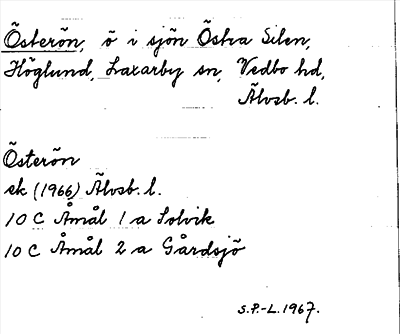 Österön, ö i sjön Östra Silen,
Höglund, Laxarby sn, Vedbo hd,
Älvsb. l.
Österön
ek (1966) Älvsb. l.
10 C Åmål 1 a Solvik
10 C Åmål 2 a Gårdsjö
S.P.-L. 1967.